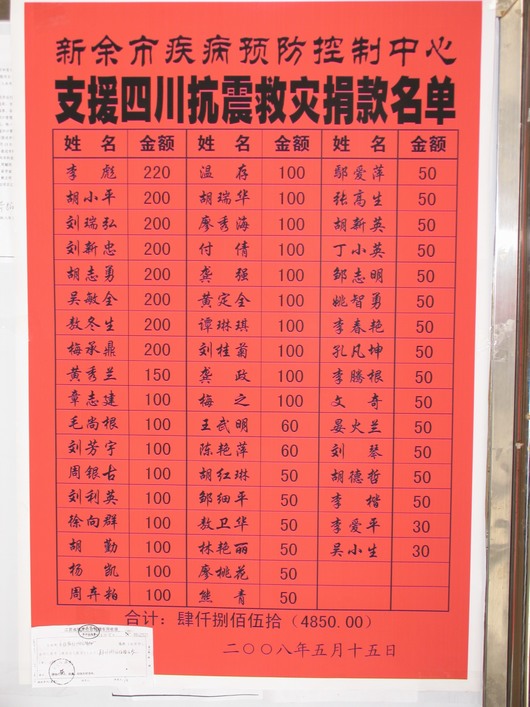 新余市疾病预防控制中心
支援四川抗震救灾捐款名单
姓 名 金额 姓 名 金额 姓 名 金额
李 彪 220 温 存 100 鄢爱萍 50
胡小平 200 胡瑞华 100 张高生 50
刘瑞弘 200 廖秀海 100 胡新英 50
刘新忠 200 付 倩 100 丁小英 50
胡志勇 200 龚 强 100 邹志明 50
吴敏全 200 黄定全 100 姚智勇 50
敖冬生 200 谭琳琪 100 李春艳 50
梅承鼎 200 刘桂菊 100 孔凡坤 50
黄秀兰 150 龚 政 100 李腾根 50
章志建 100 梅 之 100 文 奇 50
毛尚根 100 王武明 60 晏火兰 50
刘芳宇 100 陈艳萍 60 刘 琴 50
周银古 100 胡红琳 50 胡德哲 50
刘利英 100 邹细平 50 李 楷 50
徐向群 100 敖卫华 50 李爱平 30
胡 勤 100 林艳丽 50 吴小生 30
杨 凯 100 廖桃花 50
周弃柏 100 熊 青 50
合计：肆仟捌佰伍拾（4850.00）
二〇〇八年五月十五日